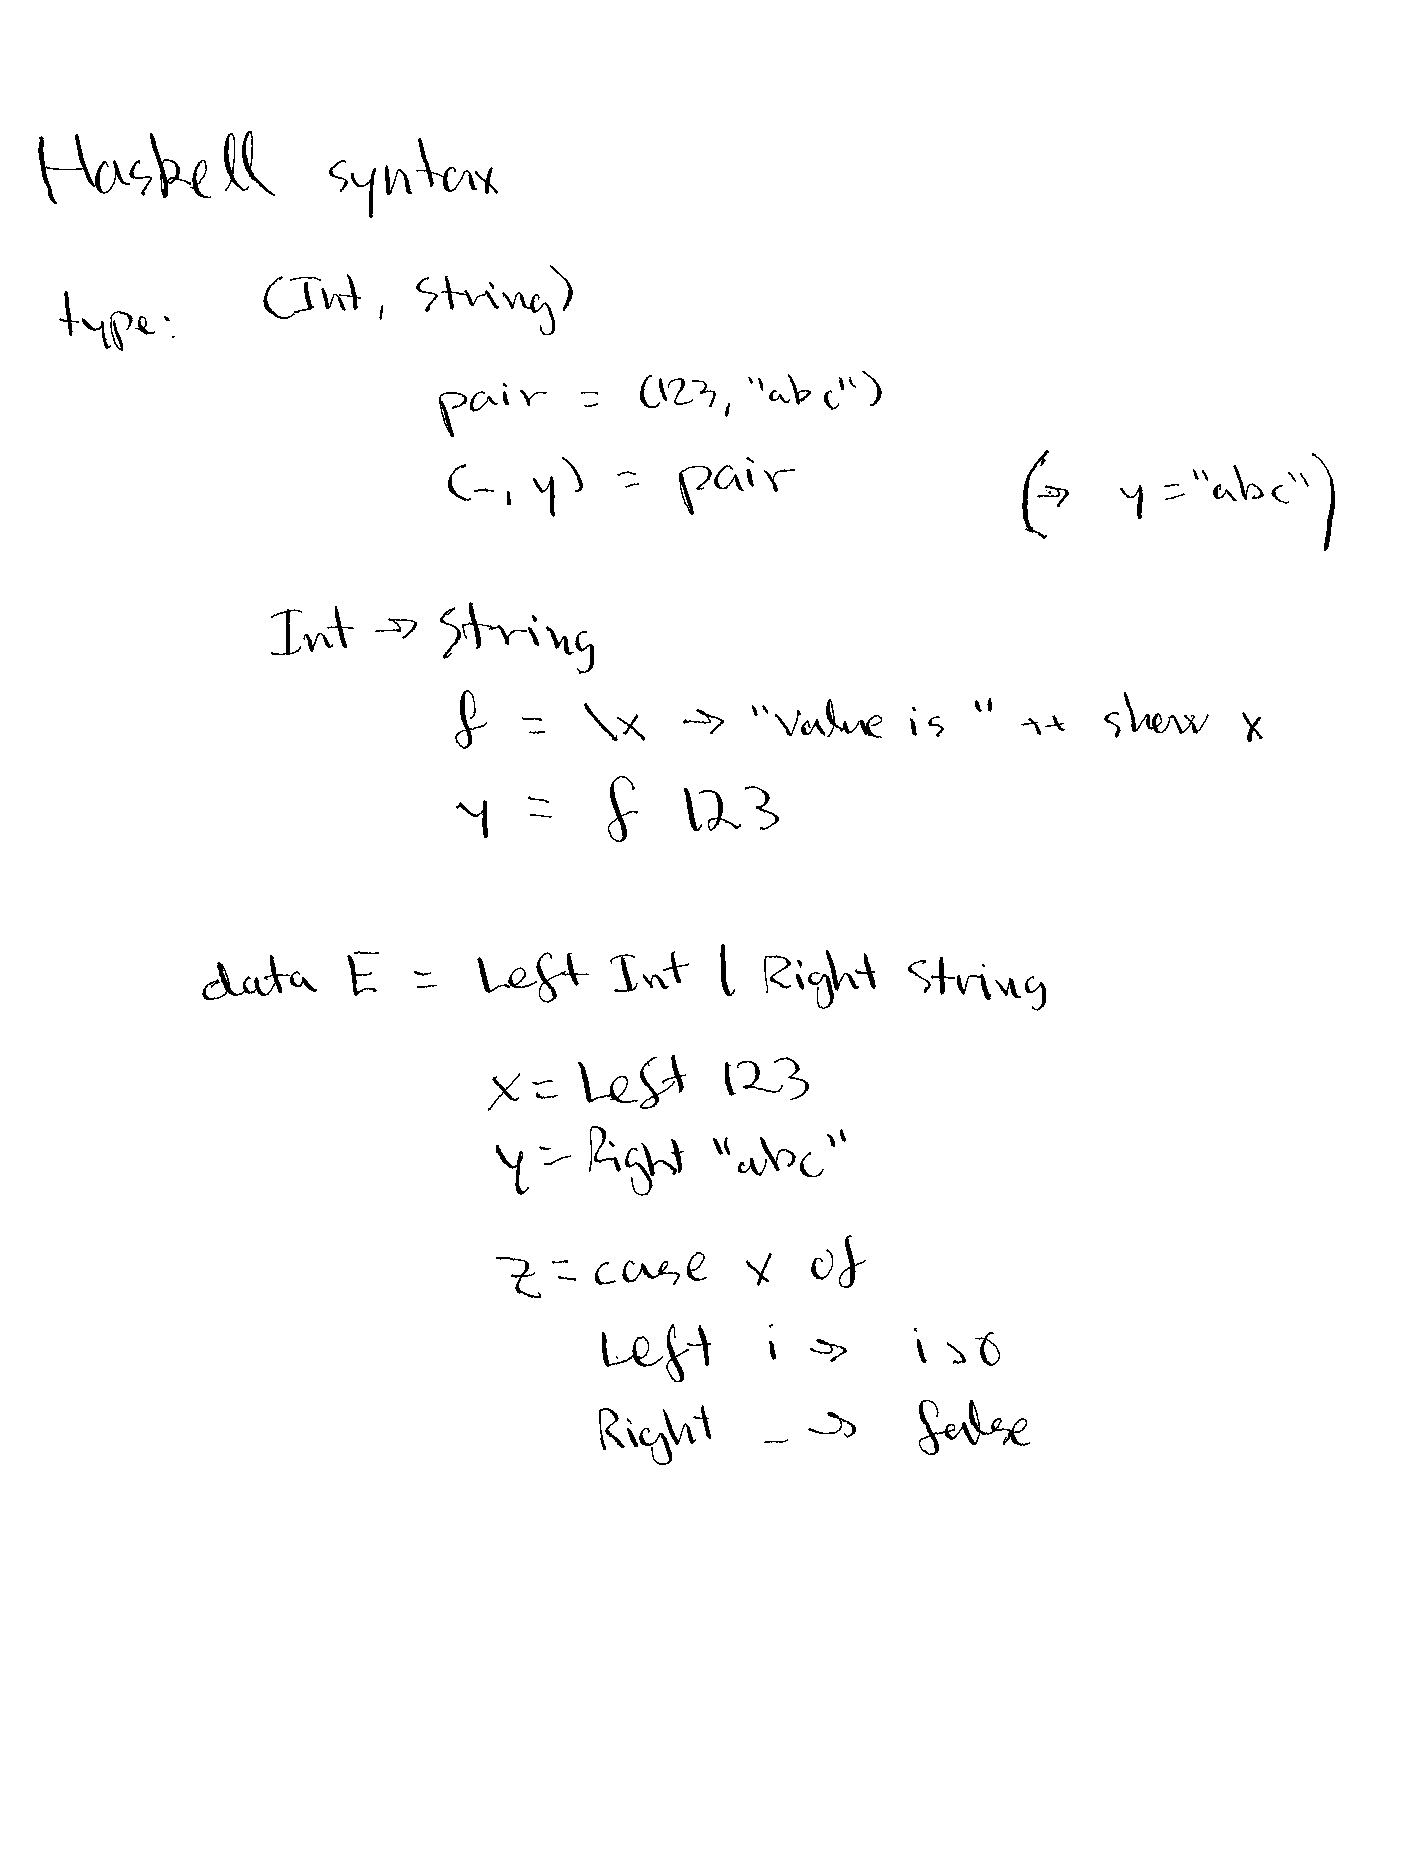 Haskell syntax
type: (Int, String)
pair = (123, "abc")
(_, y) = pair (→ y = "abc")
Int → String
f = \x → "Value is " ++ show x
y = f 123
data E = Left Int | Right String
x = Left 123
y = Right "abc"
z = case x of
Left i → i > 0
Right _ → false